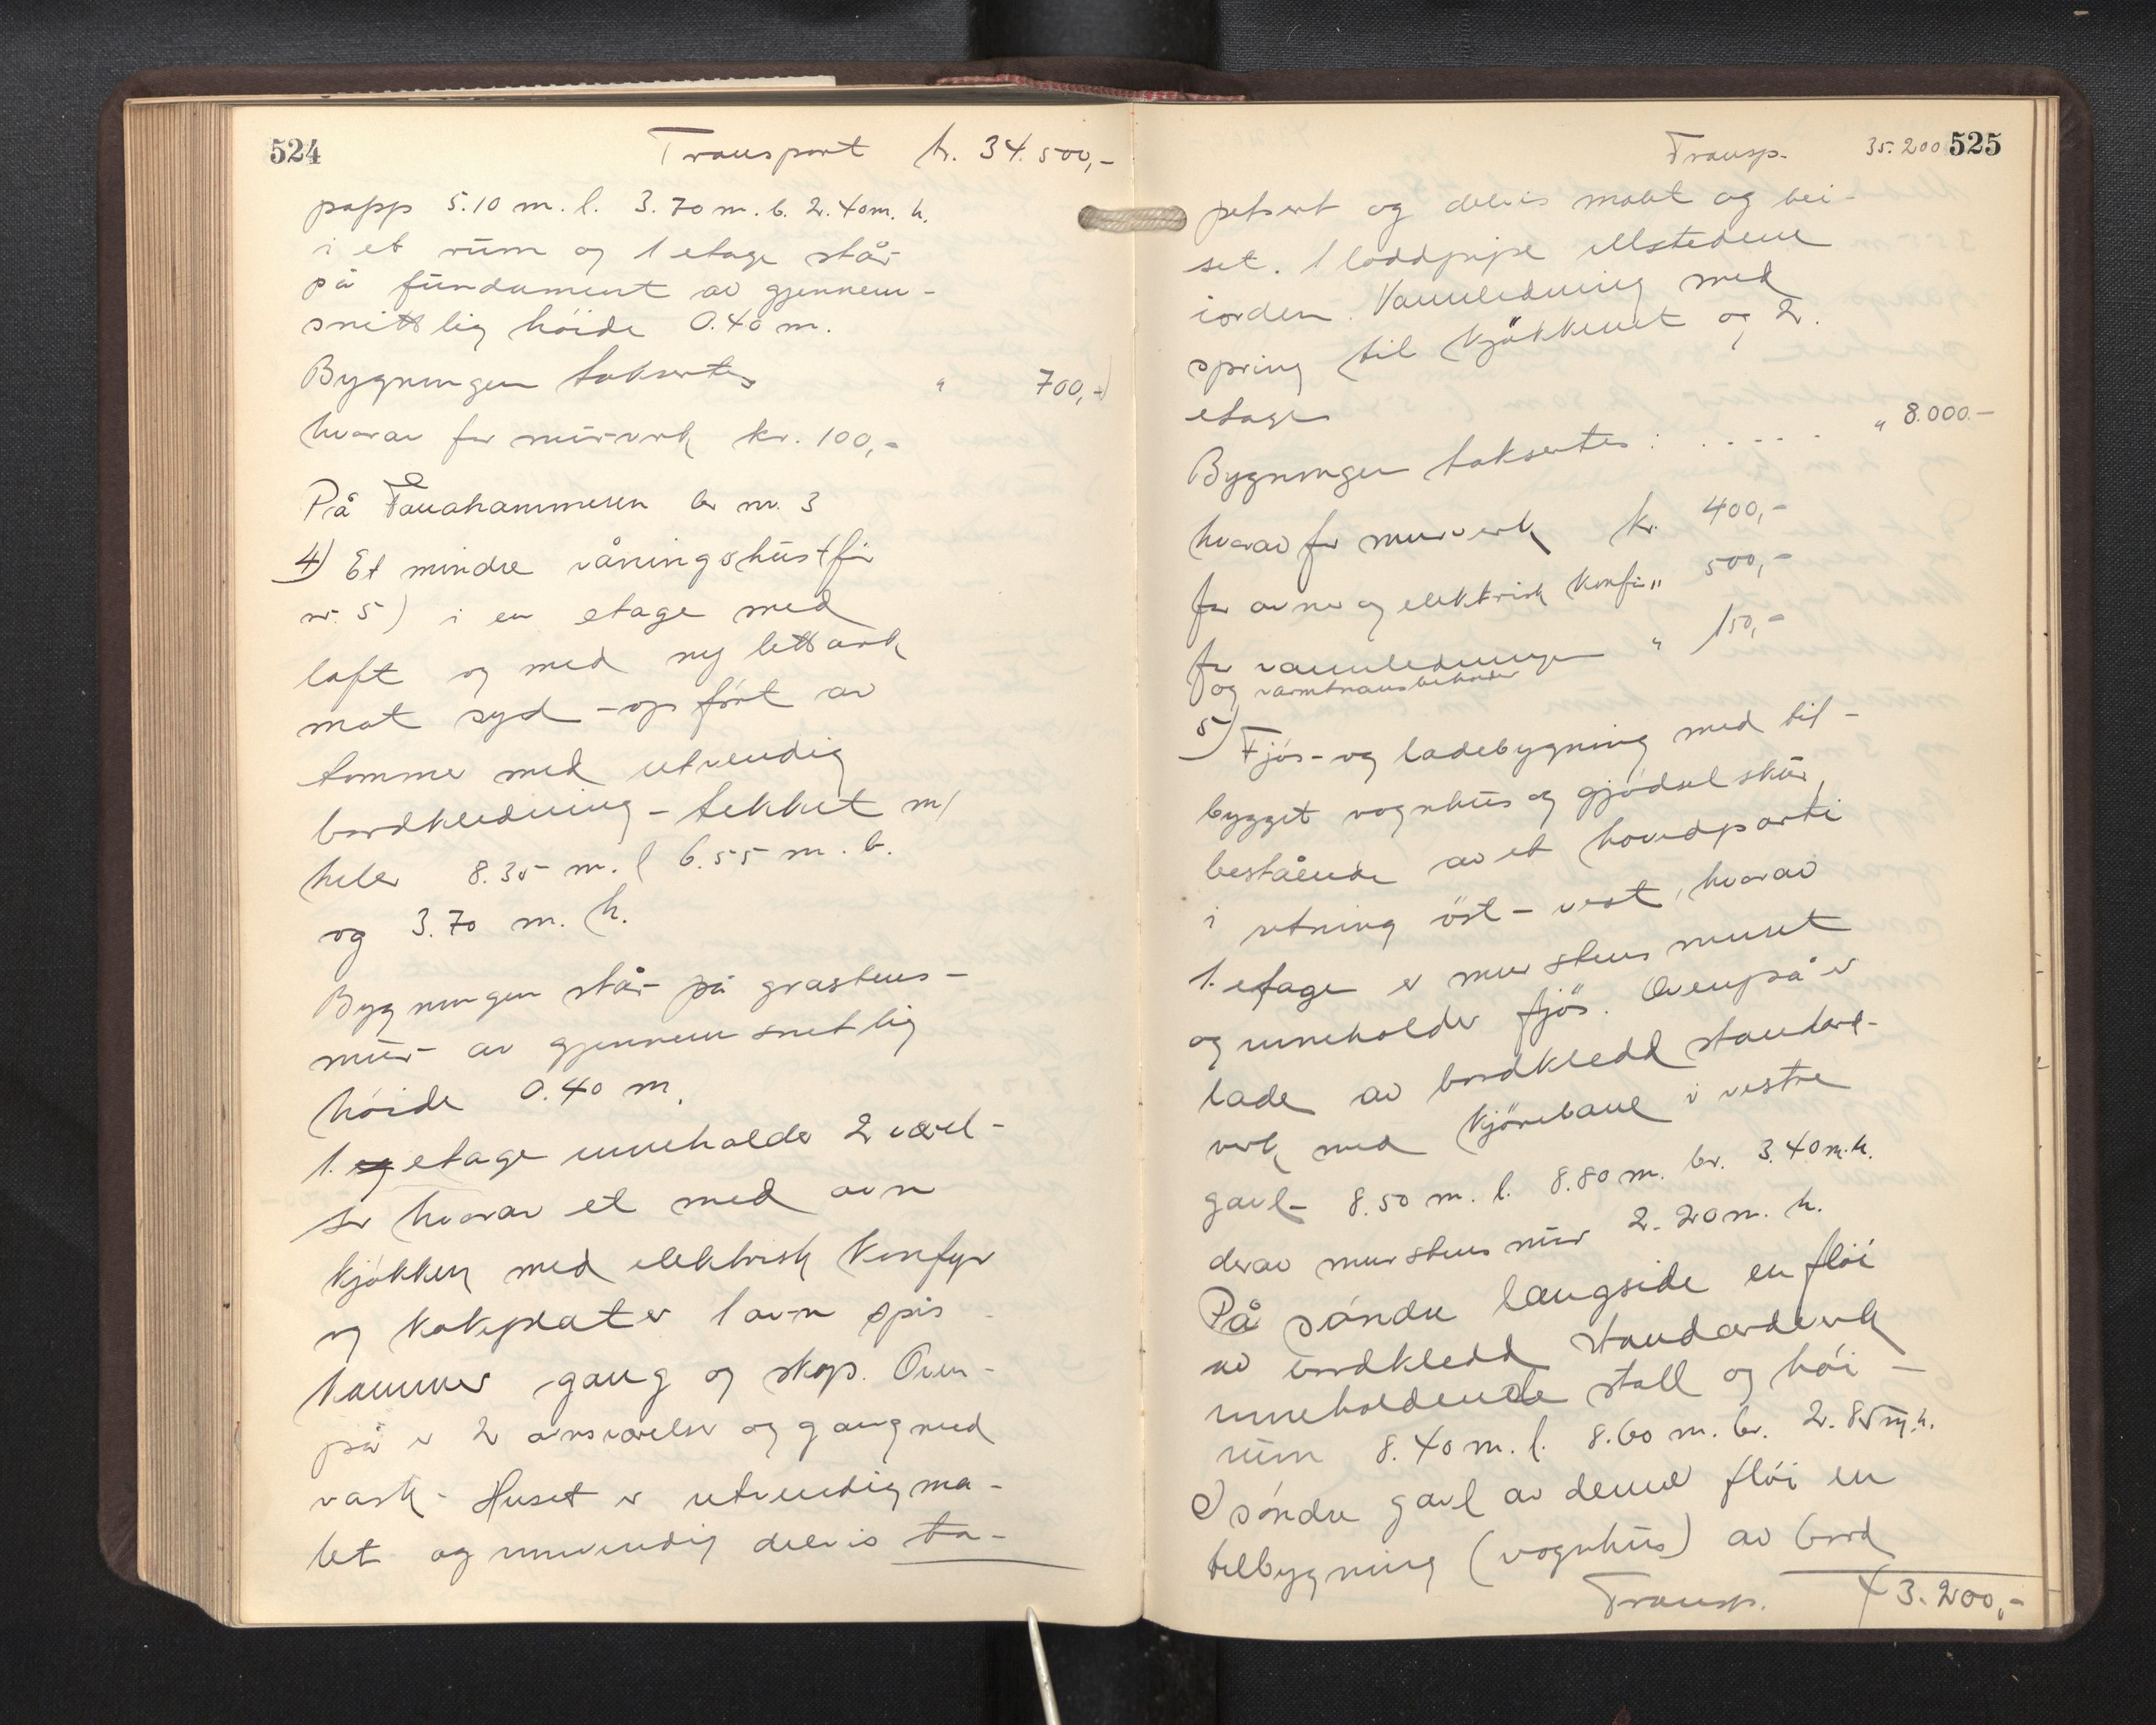 524
Transport kr. 34.500,-
papp 5.10 m. l. 3.70 m. b. 2.40 m. h.
i et rum og 1 etage står
på fundament av gjennem-
snittlig höide 0.40 m.
Bygningen takseres " 700,-
hvorav for murverk kr. 100,-
På Fanahammeren br nr. 3
4) Et mindre våningshus (för
nr. 5) i en etage med
loft og med ny lettark
mot syd - opfört av
tømmer med utvendig
bordkledning - tekket m/
heler 8.35 m. l 6.55 m. b.
og 3.70 m. h.
Bygningen står på grastens-
mur av gjennemsnetlig
höide 0.40 m.
1. etage inneholder 2 værel-
ser hvorav et med ovn
kjökken med elektrisk komfyr
og kokeplater 1 ovn spis
kammer gang og skap. Oven-
på er 2 ovnsværelser og gang med
vask - Huset er utvendig ma-
let og innvendig delvis ta-
525
Transp. 35.200
petsert og delvis malt og bei-
set. 1 loddpipe illstedene
iorden. Vannledning med
spring til kjökkenet og 2.
etage
Bygningen takseres: ..... " 8.000.-
hvorav for murverk kr. 400,-
for ovner og elektrisk komfür " 500,-
for vannledningen " 150,-
og varmtvansbeholder
5) Fjös- og ladebygning med til-
bygget vognhus og gjödselskur,
bestående av et hovedparti
i retning öst - vest, hvorav
1. etage er murstens muret
og inneholder fjös. Ovenpå er
lade av bordkledd standard-
verk med kjörebane i vestre
gavl - 8.50 m. l. 8.80 m. br. 3.40 m. h.
derav murstens mur 2.20 m. h.
På söndre langside en flöi
av bordkledd standardverk
inneholdende stall og höi-
rum 8.40 m. l. 8.60 m. br. 2.85 m. h.
I söndre gavl av denne flöi en
tilbygning (vognhus) av bord
Transp. 43.200,-